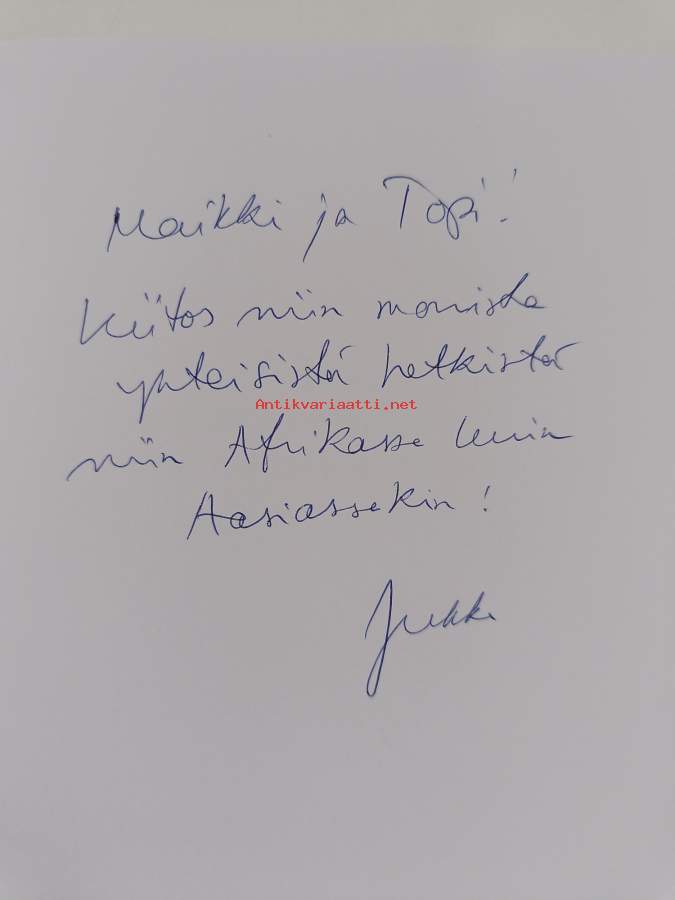 Maikki ja Topi!
Kiitos niin monista
yhteisistä hetkistä
Antikvariaatti.net
niin Afrikassa kuin
Aasiassakin!
Jukka